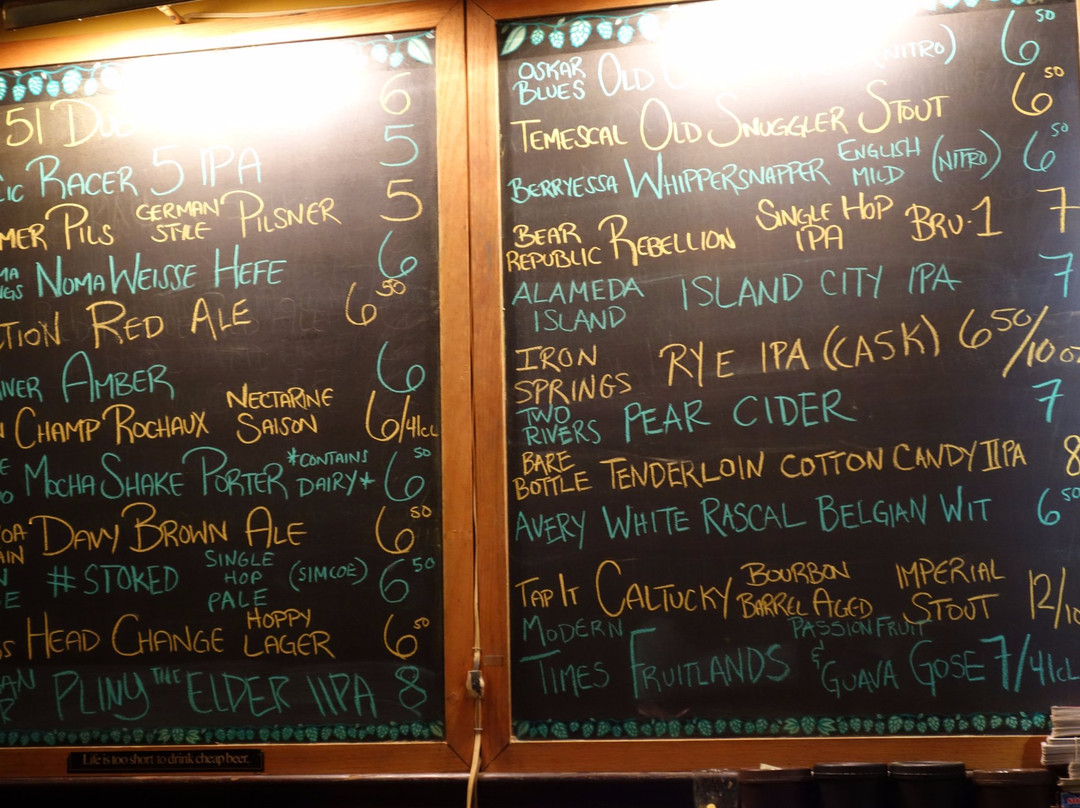 51 6
RACER 5 IPA 5
PILS GERMAN STYLE PILSNER 5
NOMA WEISSE HEFE 6
RED ALE 6 50
AMBER 6
CHAMP ROCHAUX NECTARINE SAISON 6/41cL
MOCHA SHAKE PORTER *CONTAINS DAIRY* 6 50
DAVY BROWN ALE 6 50
#STOKED SINGLE HOP PALE (SIMCOE) 6 50
HEAD CHANGE HOPPY LAGER 6 50
PLINY THE ELDER IIPA 8
Life is too short to drink cheap beer.
OSKAR BLUES OLD (NITRO) 6 50
TEMESCAL OLD SNUGGLER STOUT 6 50
BERRYESSA WHIPPERSNAPPER ENGLISH MILD (NITRO) 6 50
BEAR REPUBLIC REBELLION SINGLE HOP IPA BRU-1 7
ALAMEDA ISLAND ISLAND CITY IPA 7
IRON SPRINGS RYE IPA (CASK) 6 50/10 oz
TWO RIVERS PEAR CIDER 7
BARE BOTTLE TENDERLOIN COTTON CANDY IIPA 8
AVERY WHITE RASCAL BELGIAN WIT 6 50
TAP IT CALTUCKY BOURBON BARREL AGED IMPERIAL STOUT 12/10
MODERN TIMES FRUITLANDS PASSIONFRUIT & GUAVA GOSE 7/41cL